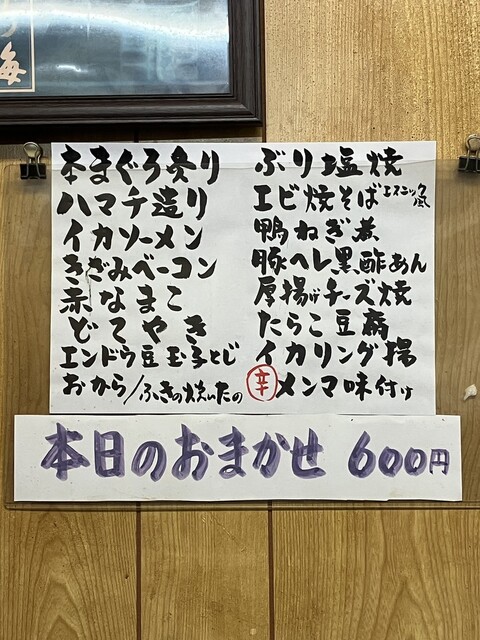 海
本まぐろ炙り
ハマチ造り
イカソーメン
きざみベーコン
赤なまこ
どてやき
エンドウ豆玉子とじ
おから/ふきの炊いたの
ぶり塩焼
エビ焼そばエスニック風
鴨ねぎ煮
豚ヘレ黒酢あん
厚揚げチーズ焼
たらこ豆腐
イカリング揚
辛メンマ味付け
本日のおまかせ 600円